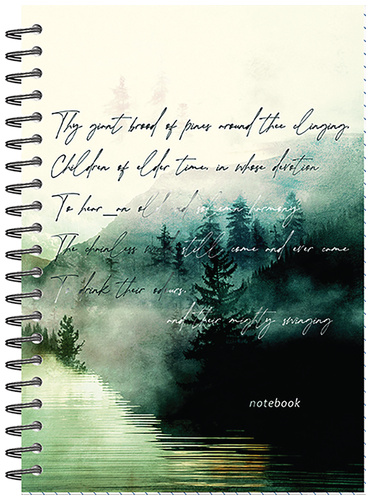 Thy giant brood of pines around thee clinging,
Children of elder time, in whose devotion
To hear_an old and solemn harmony
The chainless still come and ever came
To drink their odours,
and their mighty swinging
notebook